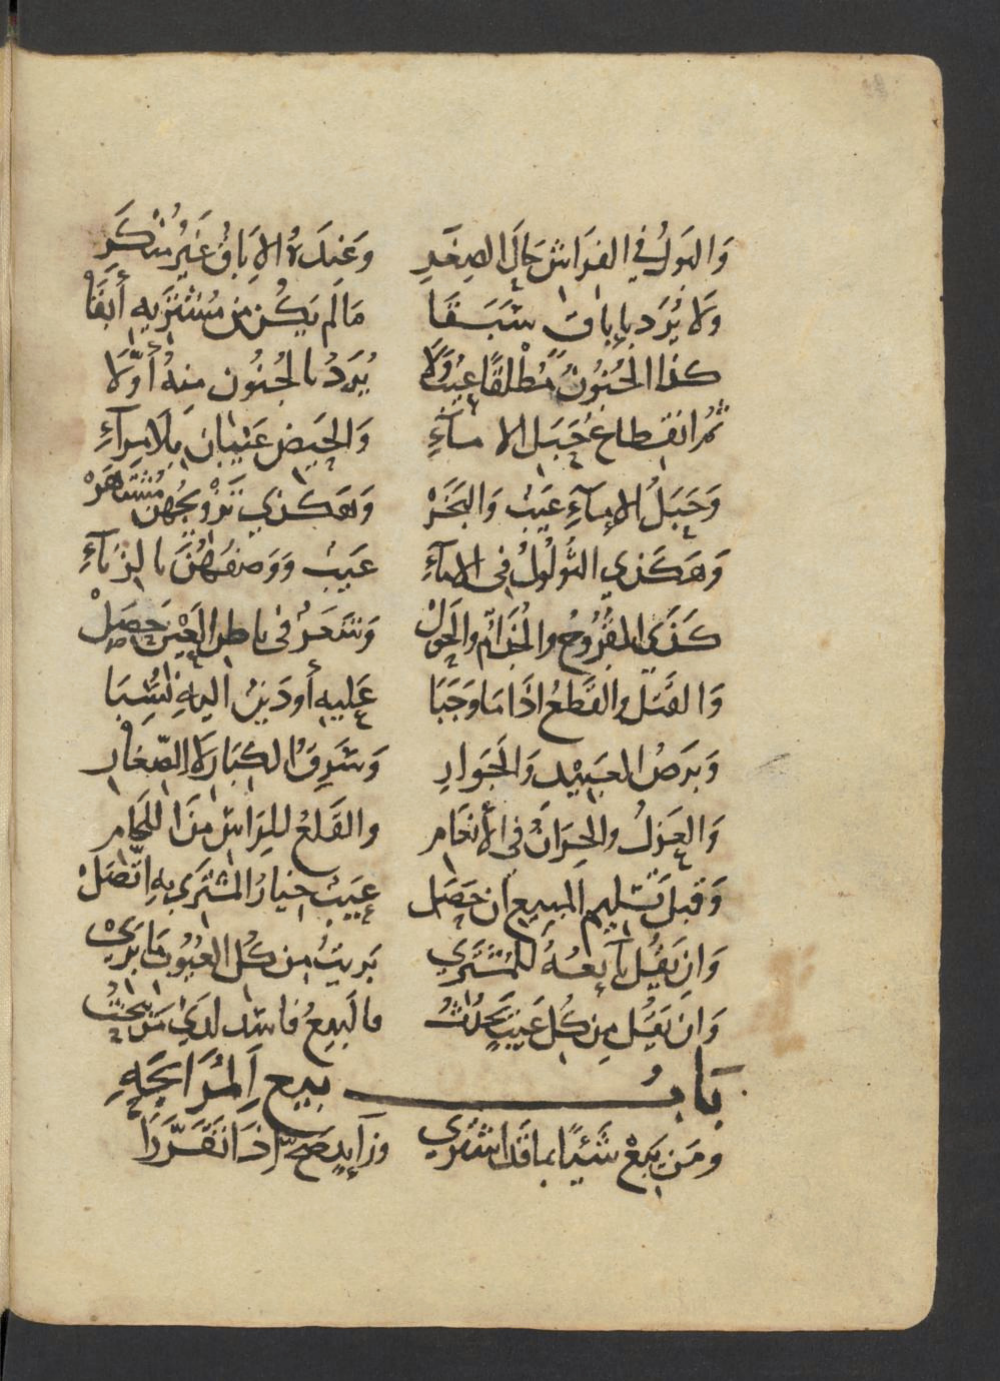 وَالبَولُ في الفِرَاشِ حَالَ الصِغَرِ وَعِندَهُ الاِبَاقُ غَيرُ مُنْكَرِ
وَلَا يُرَد بِإِبَاقٍ سَبَقَا مَا لَم يَكُن مِن مُشْتَرِيهِ أَبَقَا
كذا الجُنُونُ مُطْلقًا عَيبٌ وَلَا يُرَدُ بالجُنُونِ مِنهُ أَوَّلَا
ثُمَّ انقِطاعُ حَبَلِ الاِمآءِ وَالحَيضِ عَيْبَانِ بِلَا مِرآءِ
وَحَبَلُ الاِمآءِ عَيبٌ وَالبَخَرْ وَهَكذي تَزْوِيجُهنَّ مُشْتَهَرْ
وَهَكَذي الثُّولُولُ في الاِمآءِ عَيبٌ وَوَصفُهُنَّ بالزِنآءِ
كَذَى القُرُوحُ والجُذَامُ والحَوَلْ وَشَعَرٌ في باطِنِ العَيْنِ حَصَلْ
وَالقَتلُ والقَطعُ اذَا مَا وَجَبَا عَلَيهِ أَو دَينٌ اليهِ نُسِبَا
وَبَرَصُ العَبِيْدِ وَالجَوارِ وَسَرِقَةُ الكِبَارِ لَا الصِّغارِ
وَالعَزلُ والحِرَانُ في الأَنعَامِ والقَلعُ للرَاسِ مِنَ اللِجَامِ
وَقبلَ تَسْلِيمِ المَبِيعِ ان حَصَل عَيبٌ خِيارُ المُشتَرِي بِهِ اتَّصَلْ
وَان يَقُل بَايعُهُ لِلمُشتَرِي بَرِيتُ مِن كُلِ العُيُوبِ مَا بَرِيْ
وَانْ يَقُل مِن كُلِ عَيبٍ يَحدُثُ فالبَيعُ فاسدٌ لَدَى مَن يَبحَثُ
بَابُ بيعِ المُرَابَحَةِ
ومَن يَبِعْ شَيئًا بما قَد اشتَرِي وزَايدٍ صَحَّ اِذَا تَقَرَّرَا